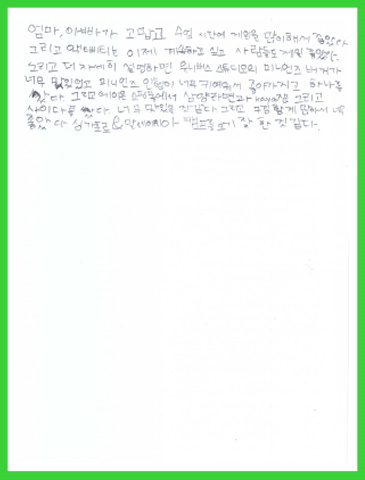 엄마, 아빠가 고맙고 수업 시간에 게임을 많이해서 좋았다
그리고 액티비티는 이제 계속하고 싶고 사람들도 제일 좋았다.
그리고 더 자세히 설명하면 유니버스 스튜디오의 미니언즈 버거가
너무 맛있었고 미니언즈 인형이 너무 귀여워서 좋아가지고 하나를
샀다. 그리고 에서 삼양라면과 kaya잼 그리고
사이다를 샀다. 너무 맛있을 것 같다 그리고 수영 함께 너무
좋았다 싱가포르&말레이시아 캠프를 오기 잘 한 것 같다.